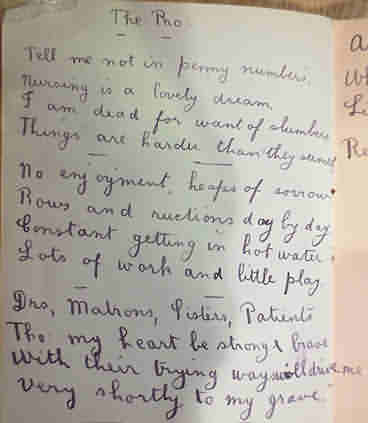 The Pro.
Tell me not in penny numbers,
Nursing is a lovely dream,
I am dead for want of slumber
Things are harder than they seemed
No enjoyment, heaps of sorrow
Rows and ructions day by day
Constant getting in hot water,
Lots of work and little play
Drs, Matrons, Sisters, Patients
Tho my heart be strong & brave
With their trying ways will drive me
Very shortly to my grave.
a
Wh
Re